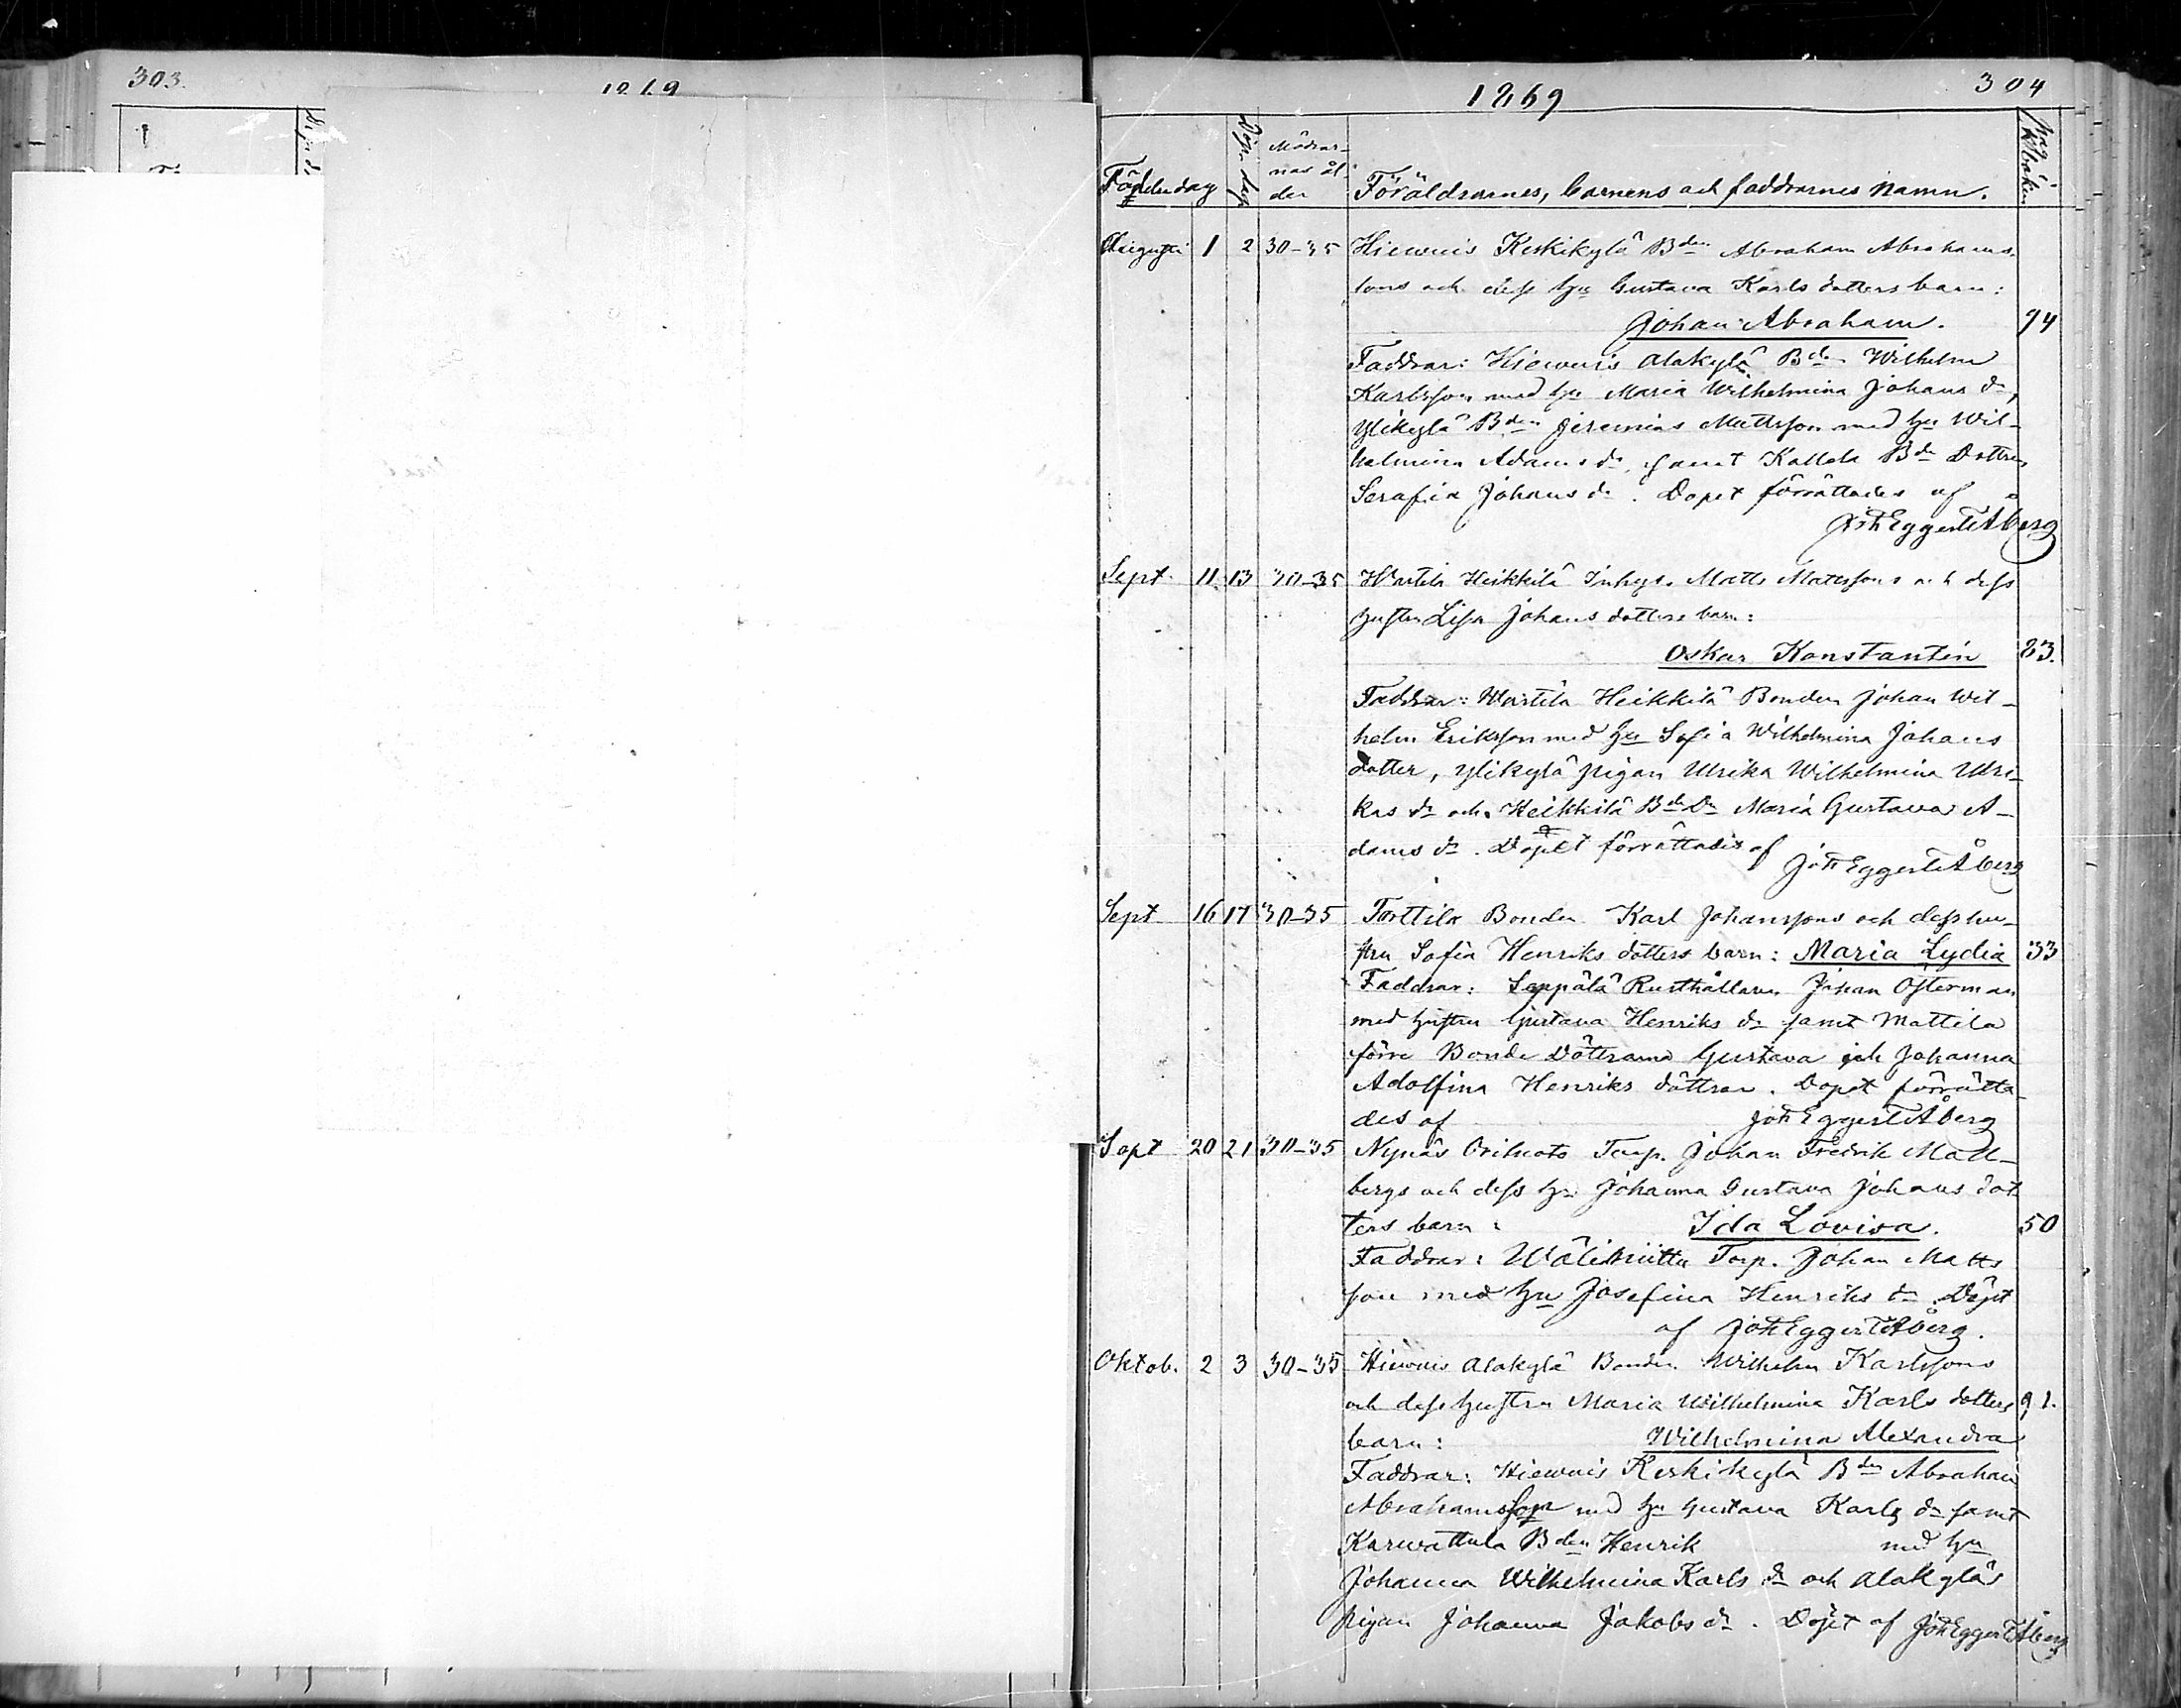 303.
1869
1869
304
Födelsedag
Döpe dag
Mödrar-
nas ål-
der
Föräldrarnes, barnens och faddrarnes namn.
Augusti 1 2 30-35 Hiewais Keskikylä Bden Abraham Abrahams-
sons och dess hu Gustava Karlsdotters barn:
Johan Abraham. 94
Faddrar: Hiewais Alakylä Bden Wilhelm
Karlsson med hu Maria Wilhelmina Johans dr,
Ylikylä Bden Jeremias Mattsson med hu Wil-
helmina Adams dr, samt Kallela Bde Dottren
Serafia Johans dr. Dopet förrättades af
Joh Eggert Åberg
Sept. 11 13 30-35 Wartila Heikkilä Inhys. Matts Matssons och dess
hustru Lisa Johans dotters barn:
Oskar Konstantin 83.
Faddrar: Wartila Heikkilä Bonden Johan Wil-
helm Eriksson med hu Sofia Wilhelmina Johans
dotter, Ylikylä pigan Ulrika Wilhelmina Ulri-
kas dr och Heikkilä Bde Dr Maria Gustava A-
dams dr. Dopet förrättades af Joh Eggert Åberg
Sept 16 17 30-35 Torttila Bonden Karl Johanssons och dess hu-
stru Sofia Henriks dotters barn: Maria Lydia 33
Faddrar: Seppälä Rusthållaren Johan Österman
med hustru Gustava Henriks dr samt Mattila
förre Bonde Döttrarna Gustava och Johanna
Adolfina Henriks döttrar. Dopet förrätta-
des af Joh Eggert Åberg
Sept 20 21 30-35 Nynäs Torp. Johan Fredrik Mall-
bergs och dess hu Johanna Gustava Johans dot
ters barn: Ida Lovisa. 50
Faddrar: Wäliniittu Torp. Johan Matts
son med hu Josefina Henriks dr. Döpt
af Joh Eggert Åberg.
Oktob. 2 3 30-35 Hiewais Alakylä Bonden Wilhelm Karlssons
och dess hustru Maria Wilhelmina Karls dotters 91.
barn: Wilhelmina Alexandra
Faddrar: Hiewais Keskikylä Bden Abraham
Abrahamsson med hu Gustava Karls dr samt
Karwattula Bden Henrik med hu
Johanna Wilhelmina Karls dr och Alakyläs
pigan Johanna Jakobs dr. Döpt af Joh Eggert Åberg